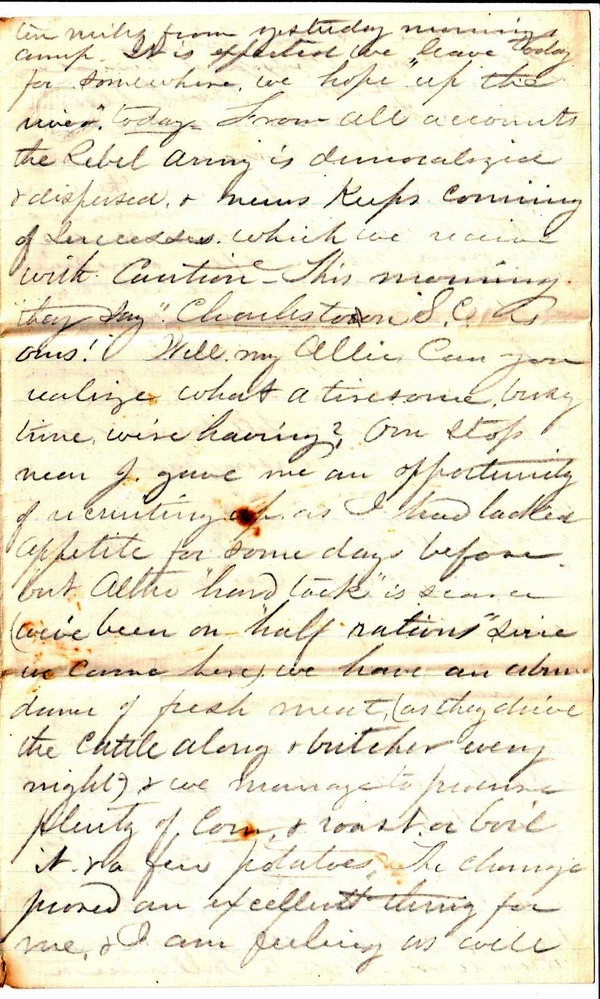 ten miles from yesterday morning's
camp It is expected we leave today
for somewhere, we hope "up the
river", today - From all accounts
the Rebel Army is demoralized
& dispersed, & news Keeps coming
of successes. which we receive
with Caution - This morning
they say "Charlestown S.C. is
ours! Well, my Allie Can you
realize what a tiresome, busy
time, we're having? Our stop
near J. gave me an opportunity
of recruiting up. as I had lacked
appetite for some days before.
but altho "hard tack" is scarce
(we've been on "half rations" since
we came here) we have an abun
dance of fresh meat, (as they drive
the Cattle along & butcher every
night) & we manage to procure
plenty of Corn, & roast or boil
it & a few potatoes, The change
proved an excellent thing for
me, & I am feeling as well